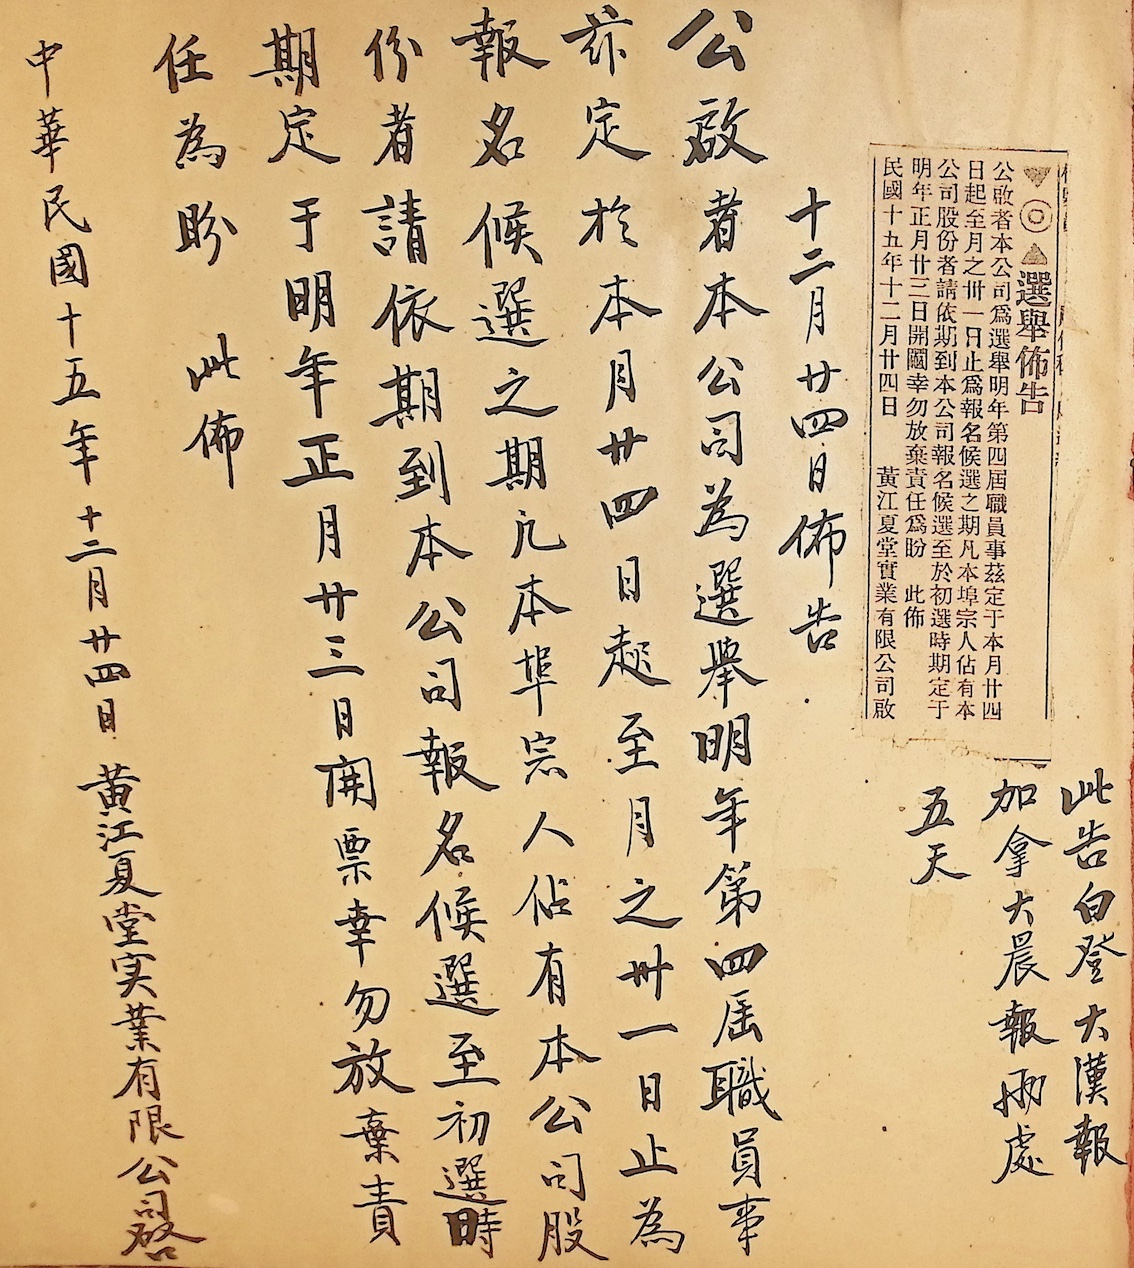 此告白登大漢報
加拿大晨報兩處
五天
▼◎▲選舉佈告
公啟者本公司爲選舉明年第四屆職員事茲定于本月廿四
日起至月之卅一日止爲報名候選之期凡本埠宗人佔有本
公司股份者請依期到本公司報名候選至於初選時期定于
明年正月廿三日開圖幸勿放棄責任爲盼 此佈
民國十九年十二月廿四日 黃江夏堂實業有限公司啟
十二月廿四日佈告
公啟者本公司為選舉明年第四屆職員事
茲定於本月廿四日起至月之卅一日止為
報名候選之期凡本埠宗人佔有本公司股
份者請依期到本公司報名候選至初選時
期定于明年正月廿三日開票幸勿放棄責
任為盼 此佈
中華民國十五年十二月廿四日 黃江夏堂实業有限公司啓